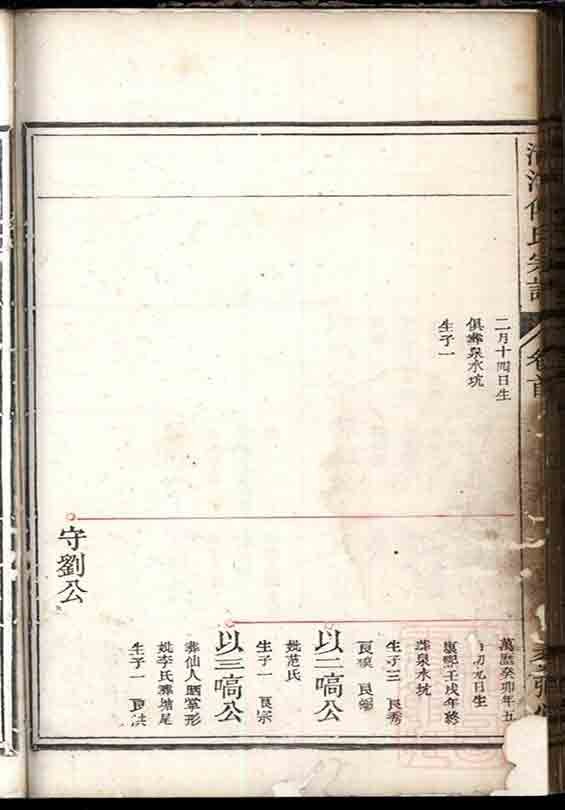 何氏宗譜
卷首
二月十四日生
俱葬泉水坑
生子一
萬歷癸卯年五
月九日生
康熙壬戌年終
葬泉水坑
生子三 良秀
以二嗃公
妣范氏
生子一 良宗
以三嗃公
葬仙人晒掌形
妣李氏葬塘尾
生子一 良洪
守劉公